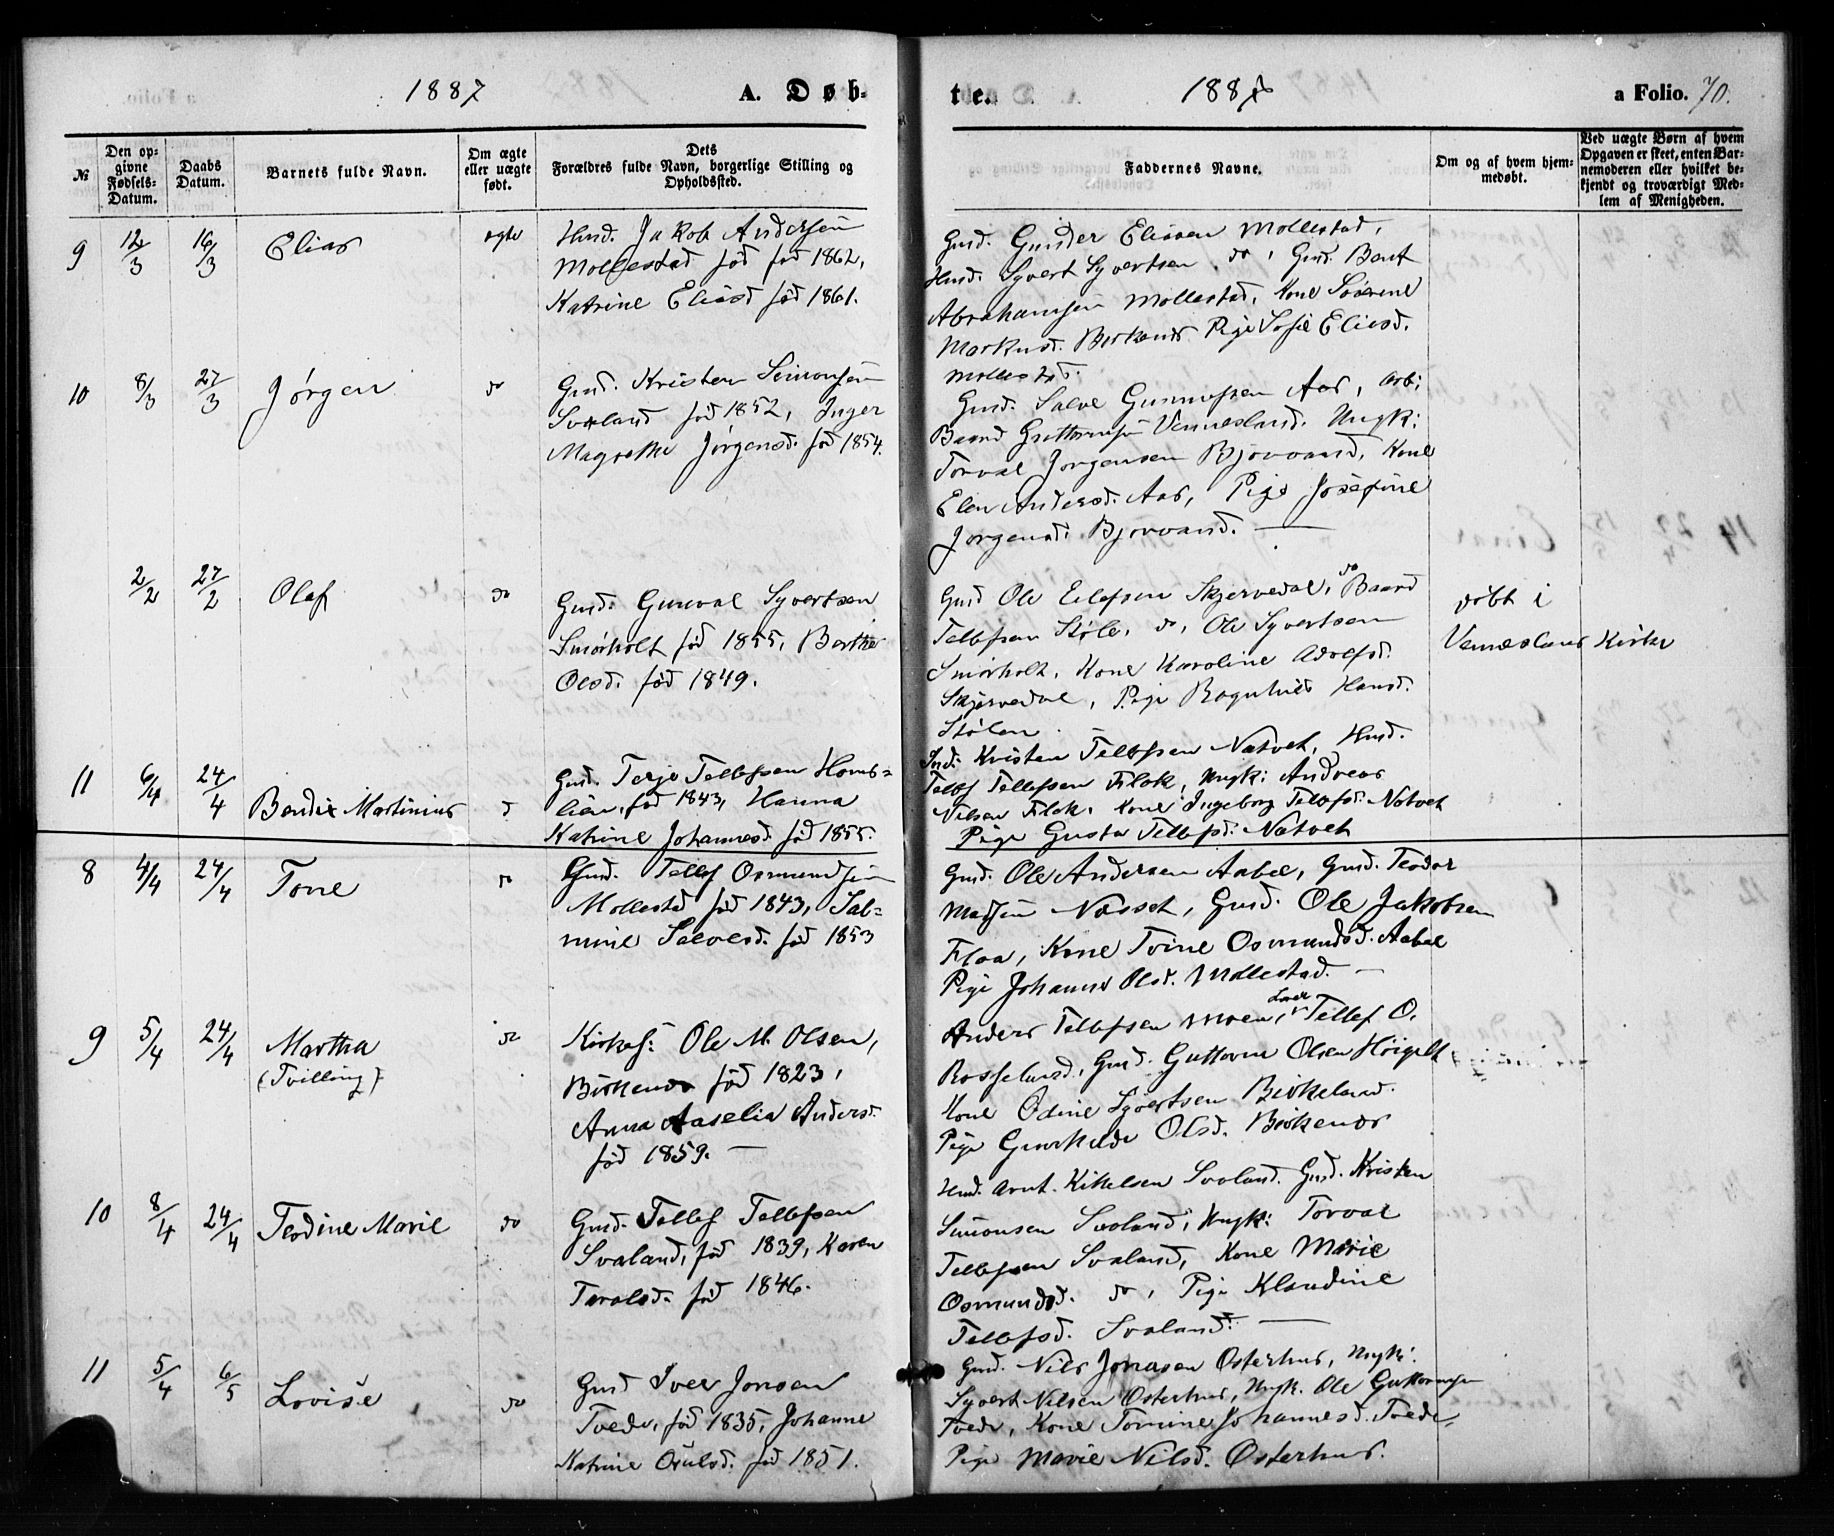 1887
A. Døb-
te.
188
a Folio. 70.
№
Den op-
givne
Fødsels-
Datum.
Daabs
Datum.
Barnets fulde Navn.
Om ægte
eller uægte
født.
Dets
Forældres fulde Navn, borgerlige Stilling og
Opholdssted.
Faddernes Navne.
Om og af hvem hjem-
medøbt.
Ved uægte Børn af hvem
Opgaven er skeet, enten Bar-
nemoderen eller hvilket be-
kjendt og troværdigt Med-
lem af Menigheden.
9 12/3 16/3 Elias ægte
Husd. Jakob Andersen
Mollestad fød fød 1862,
Katrine Eliasd fød 1861.
Gmd. Gunder Eliasen Mollestad,
Husd. Syvert Syvertsen do, Gmd. Bent
Abrahamsen Mollestad, Kone
Markusd. Birkenes Pige Sofie Eliasd.
Mollestad.
10 8/3 27/3 Jørgen do
Gmd. Kristen Simonsen
Svaland fød 1852, Inger
Magrethe Jørgensd. fød 1854.
Gmd. Salve Gunnufsen Aas, Arb:
Baard Guttormsen Vennesland. Ungk:
Torval Jørgensen Bjorvand, Kone
Elen Andersd. Aas, Pige Josefine
Jørgensd. Bjorvand.
2/2 27/2 Olaf do
Gmd. Gunval Syvertsen
Smørholt fød 1855, Berthe
Olsd. fød 1849.
Gmd Ole Eilefsen Skjervedal, do Baard
Tellefsen Støle, do, Ole Syvertsen
Smørholt, Kone Karoline Adolfsd.
Skjervedal, Pige Ragnhild Hansd.
Stølen
døbt i
Vennesland Kirke
11 6/4 24/4 Bendix Martinius d
Gmd. Terje Tellefsen Homs-
lien, fød 1843, Hanna
Katrine Johannesd. fød 1855.
Kristen Tellefsen Natvet, Husd.
Tellef Tellefsen Flak, Ungk: Andreas
Nilsen Flak, Kone Ingeborg Tellefsd. Natvet
Pige Gusta Tellefsd. Natvet
8 4/4 24/4 Tone do
Gmd. Tellef Osmundsen
Mollestad fød 1843, Sal-
mine Salvesd. fød 1853
Gmd. Ole Andersen Aabel, Gmd. Teodor
Madsen Næsset, Gmd. Ole Jakobsen
Flaa, Kone Trine Osmundsd. Aabel
Pige Johanne Olsd. Mollestad.
9 5/4 24/4 Martha do
(Tvilling)
Kirkes: Ole M. Olsen,
Birkenes fød 1823,
Anna Aaselia Andersd.
fød 1859.
Anders Tellefsen Moen, Tellef O.
Rosseland, Gmd. Guttorm Olsen Høigilt
Kone Odine Syvertsen Birkeland.
Pige Gunhilde Olsd. Birkenes
10 8/4 24/4 Teodine Marie do
Gmd. Tellef Tellefsen
Svaland, fød 1839, Karen
Taralsd. fød 1846.
Husd. Arnt. Kittelsen Svaland. Gmd. Kristen
Simonsen Svaland, Ungk: Torval
Tellefsen Svaland, Kone Marie
Osmundsd. do, Pige Klaudine
Tellefsd. Svaland.
11 5/4 6/5 Lovise do
Gmd Iver Jonsen
Tvede, fød 1835, Johanne
Katrine Osulsd. fød 1851.
Gmd. Nils Jonasen Osterhus, Ungk:
Syvert Nilsen Osterhus, Ungk. Ole Guttormsen
Tvede, Kone Tomine Johannesd. Tvede,
Pige Marie Nilsd. Osterhus.